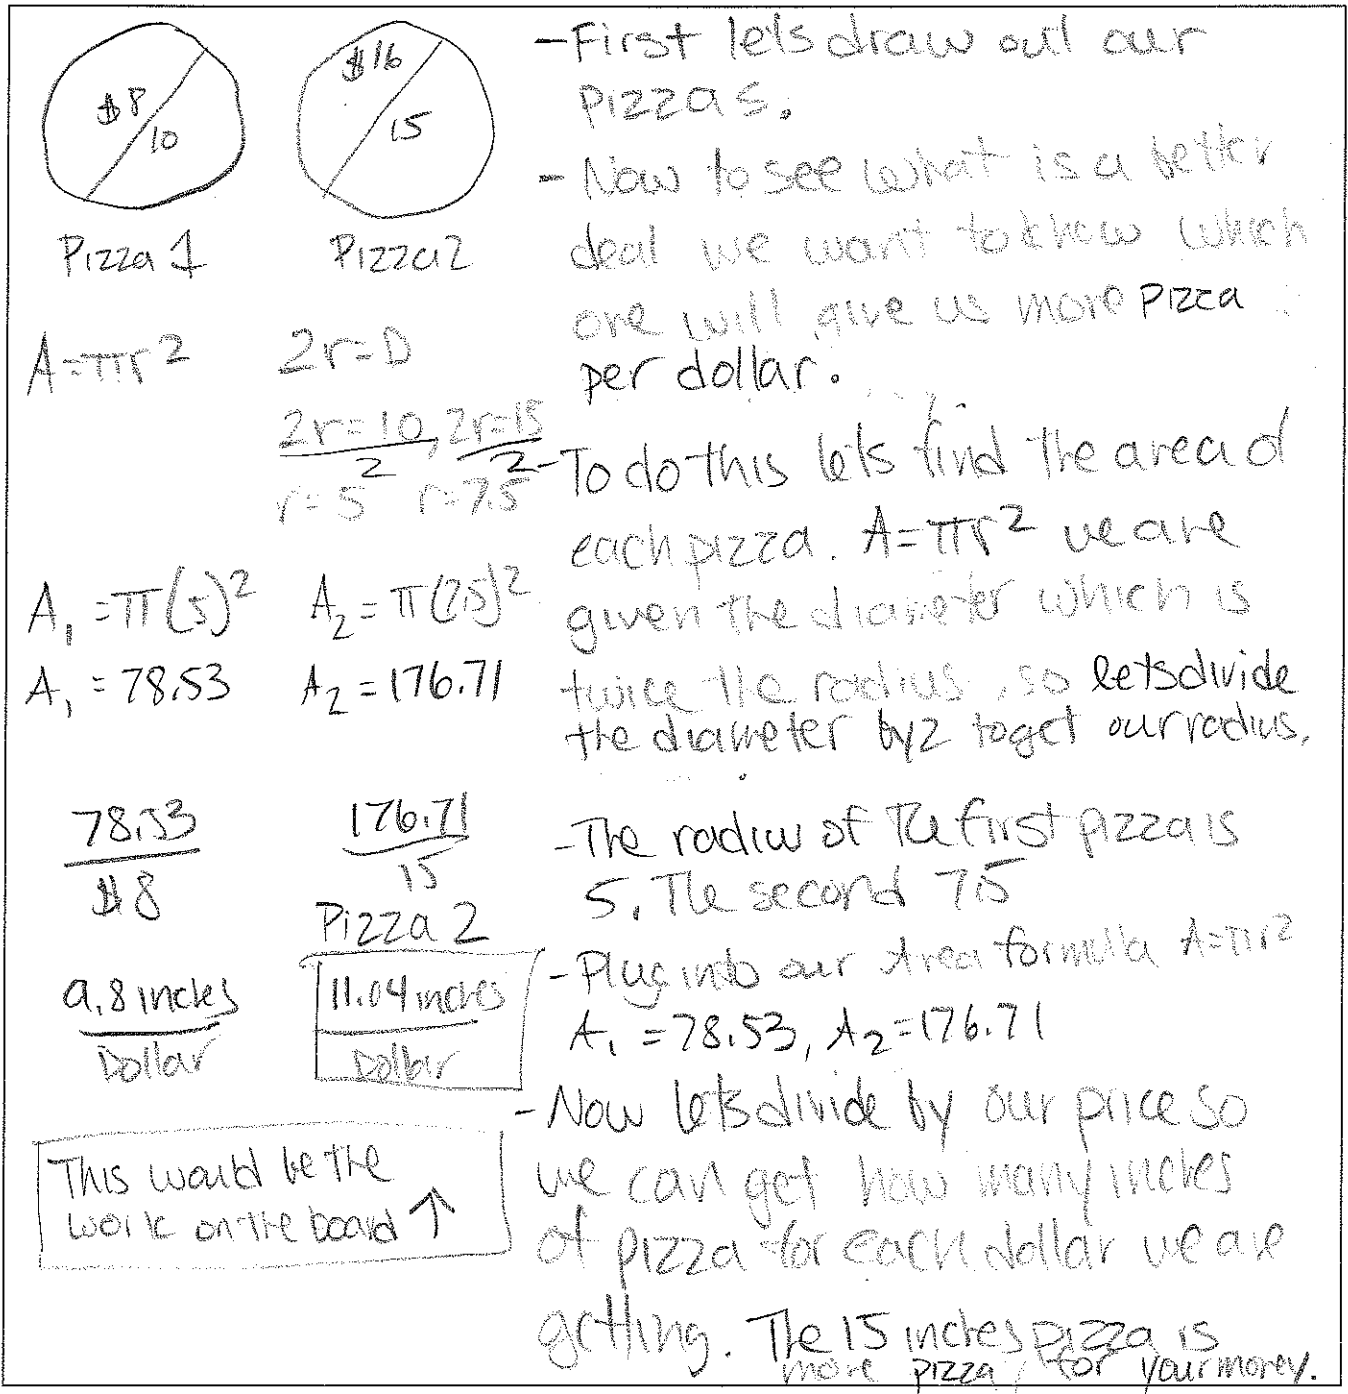 $8
10
Pizza 1
$16
15
Pizza 2
A=πr²
2r=D
2r=10, 2r=15
2 2
r=5 r=7.5
A₁=π(5)² A₂=π(7.5)²
A₁=78.53 A₂=176.71
78.53
$8
176.71
15
Pizza 2
9.8 inches
Dollar
11.04 inches
Dollar
This would be the
work on the board ↑
-First lets draw out our
pizzas.
- Now to see what is a better
deal we want to know which
one will give us more pizza
per dollar.
-To do this lets find the area of
each pizza. A=πr² we are
given the diameter which is
twice the radius, so lets divide
the diameter by 2 to get our radius.
-The radius of the first pizza is
5. The second 7.5
-Plug into our Area formula A=πr²
A₁=78.53, A₂=176.71
-Now lets divide by our price so
we can get how many inches
of pizza for each dollar we are
getting. The 15 inches pizza is
more pizza for your money.